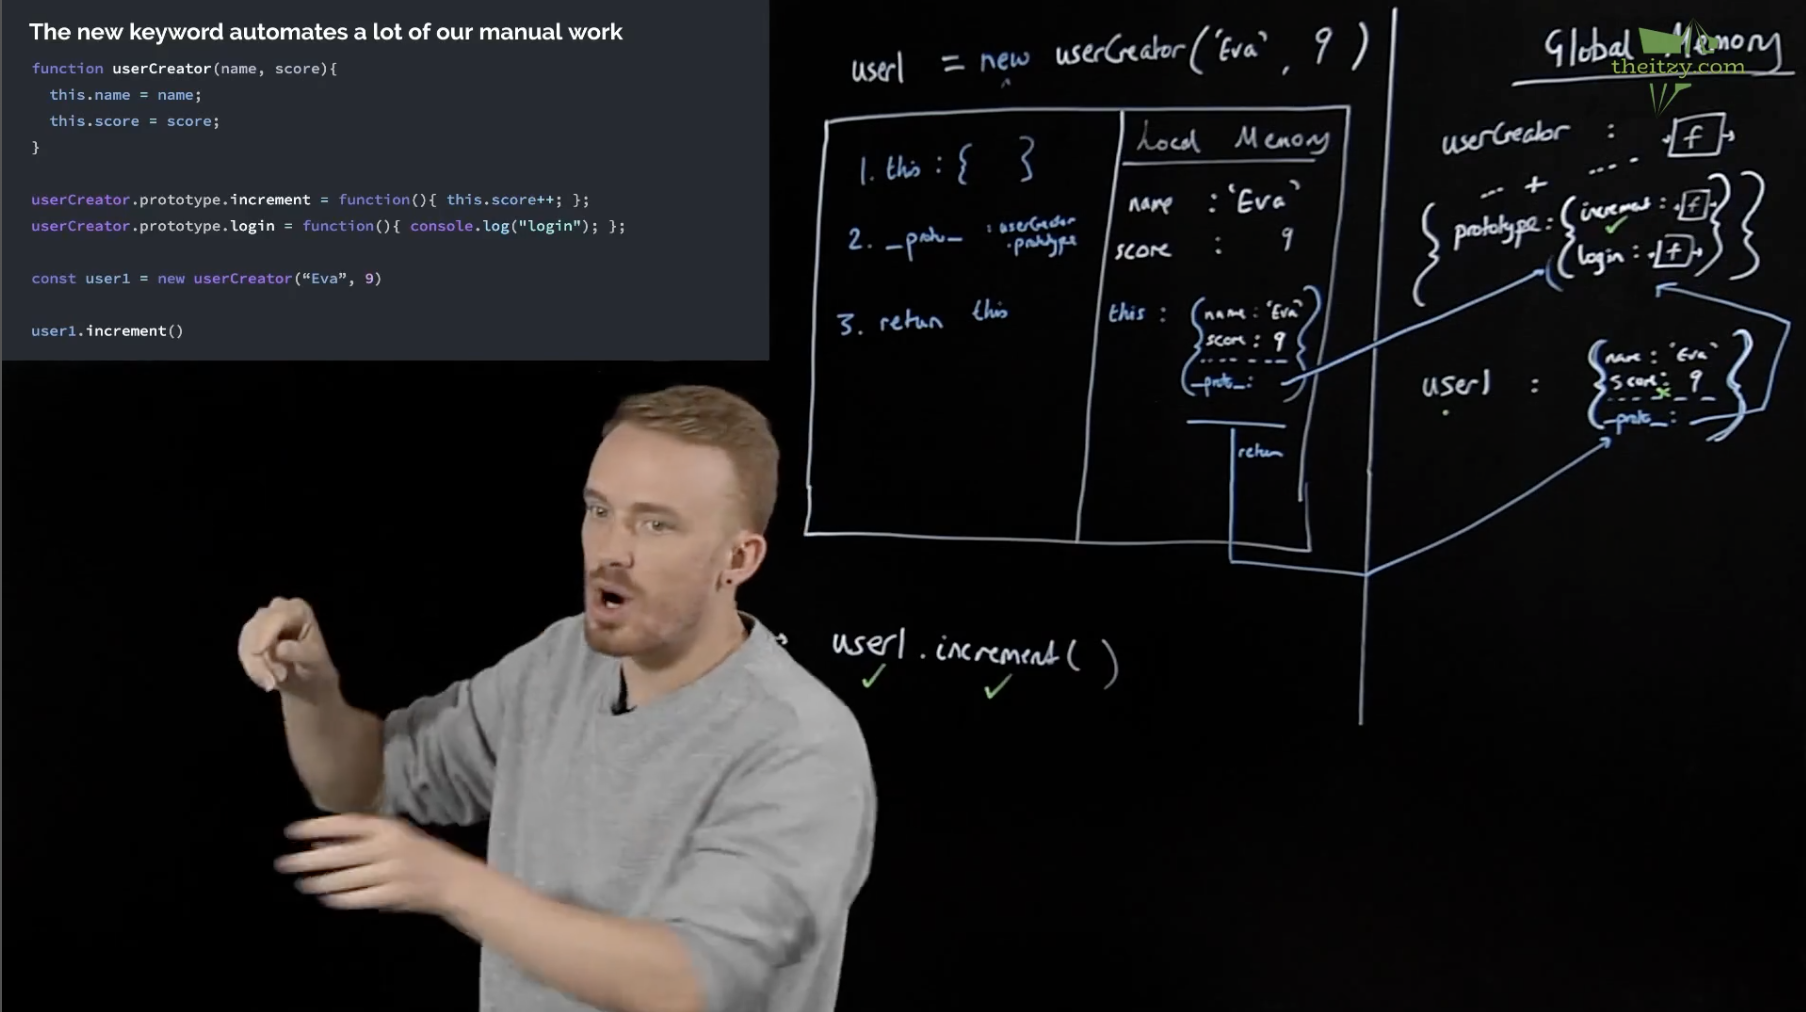 The new keyword automates a lot of our manual work
function userCreator(name, score){
this.name = name;
this.score = score;
}
userCreator.prototype.increment = function(){ this.score++; };
userCreator.prototype.login = function(){ console.log("login"); };
const user1 = new userCreator(“Eva”, 9)
user1.increment()
user1 = new userCreator('Eva', 9)
1. this : { }
2. _proto_ : userCreator
.prototype
3. return this
Local Memory
name : 'Eva'
score : 9
this : { name : 'Eva'
score : 9
_proto_: }
return
user1.increment()
Global Memory
theitzy.com
userCreator : f
... + ....
{ prototype : { increment : f
login : f } }
user1 : { name : 'Eva'
score : 9
_proto_: }